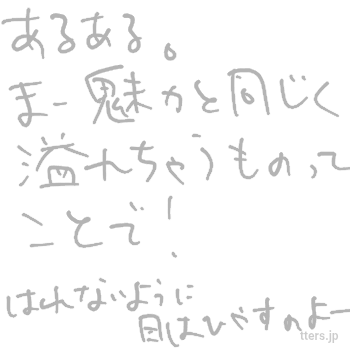 あるある。
まー魅力と同じく
溢れちゃうものって
ことで!
はれないように
目はひやすのよー
tters.jp